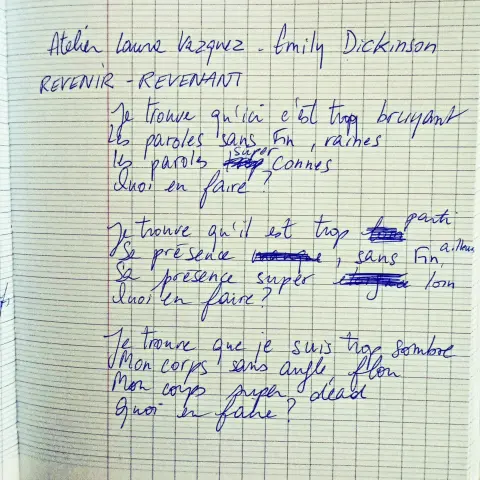 Atelier Laura Vazquez - Emily Dickinson
REVENIR - REVENANT
Je trouve qu'ici c'est trop bruyant
Les paroles sans fin, vaines
les paroles super connes
Quoi en faire ?
Je trouve qu'il est trop parti
Sa présence, sans fin, ailleurs
Sa présence super loin
Quoi en faire ?
Je trouve que je suis trop sombre
Mon corps sans angle, flou
Mon corps super dead
Quoi en faire ?